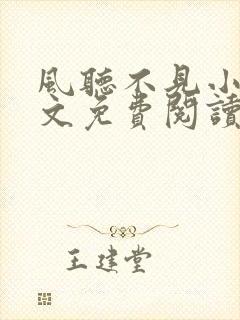 風聽不見小
文免費閱讀
王建堂